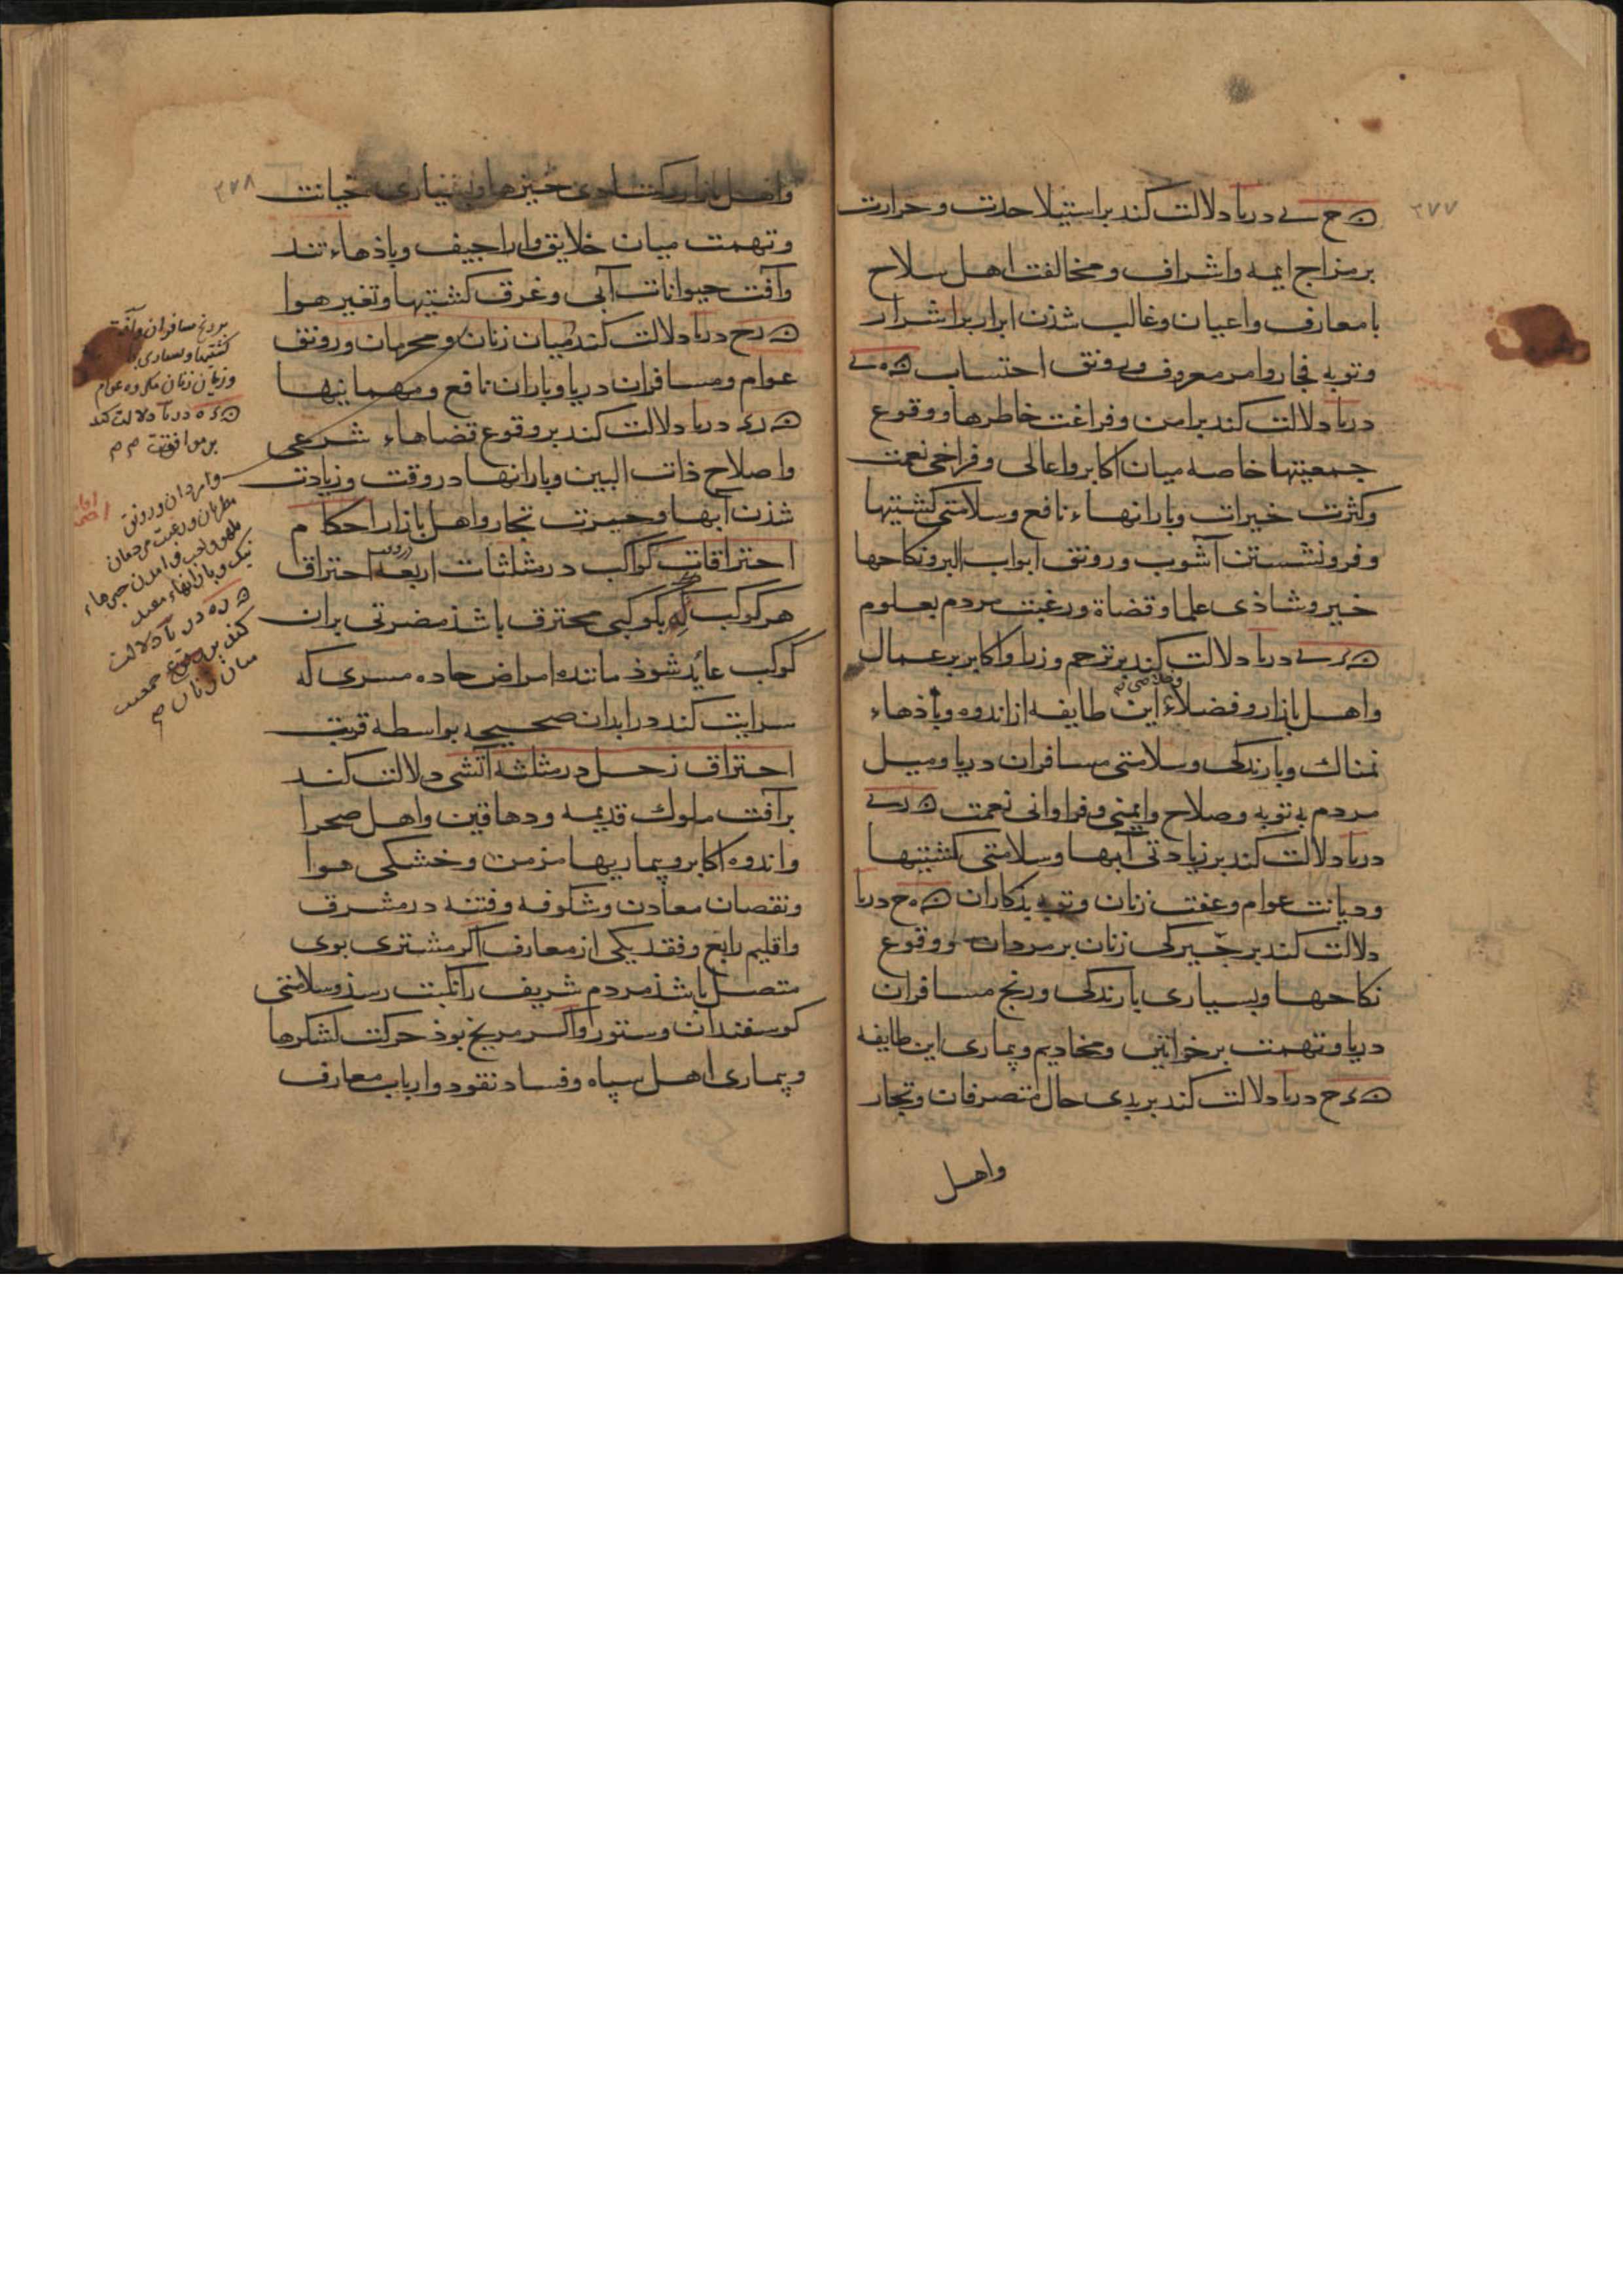 ۳۷۷
ح ے دریا دلالت کند بر استیلا حدت و حرارت
بر مزاج ایمه و اشراف و مخالفت اهل سلاح
با معارف و اعیان و غالب شذن ابرار بر اشرار
و توبه فجار و امر معروف و رونق احتساب ه ے
دریا دلالت کند بر امن و فراغت خاطرها و وقوع
جمعیتها خاصه میان اکابر و اعالی و فراخی نعمت
و کثرت خیرات و بارانهاء نافع و سلامتی کشتیها
و فرو نشستن آشوب و رونق ابواب البر و نکاحها
خیر و شاذی علما و قضاة و رغبت مردم بعلوم
ے دریا دلالت کند بر ترحم وزرا و اکابر بر عمال
و اهل بازار و فضلاء این طایفه از اندوه و باذهاء
و خلاصی
نمناك و بارندکی و سلامتی مسافران دریا و میل
مردم به توبه و صلاح و ایمنی و فراوانی نعمت
دریا دلالت کند بر زیادتی آبها و سلامتی کشتیها
و دیانت عوام و عفت زنان و توبه بذکاران ه ح دریا
دلالت کند بر چیرکی زنان بر مردان و وقوع
نکاحها و بسیاری بارندکی و رنج مسافران
دریا و تهمت بر خواتین و مخادیم و بیماری این طایفه
ح دریا دلالت کند بر بدی حال متصرفان و تجار
واهل
۳۷۸
و اهل بازار خیانت
و تهمت میان خلایق و اراجیف و باذهاء تند
و آفت حیوانات آبی و غرق کشتیها و تغیر هوا
رح دریا دلالت کند میان زنان و محرمان و رونق
عوام و مسافران دریا و باران نافع و مهمانیها
دریا دلالت کند بر وقوع قضاهاء شرعی
و اصلاح ذات البین و بارانها در وقت و زیادت
شذن آبها و حیرت تجار و اهل بازار احکام
احتراقات کواکب در مثلثات اربعه احتراق
هر کوکب که بکوکبی محترق باشذ مضرتی بران
کوکب عاید شوذ مانند امراض حاده مسری که
سرایت کند در ابدان صحیحه بواسطه قربت
احتراق زحل در مثلثه آتشی دلالت کند
بر آفت ملوك قدیمه و دهاقین و اهل صحرا
و اندوه اکابر و بیماریها مزمن و خشکی هوا
و نقصان معادن و شکوفه و فتنه در مشرق
و اقلیم رابع و فقد یکی از معارف اگر مشتری بوی
متصل باشذ مردم شریف را نکبت رسذ و سلامتی
کوسفندان و ستور و اگر مریخ بوذ حرکت لشکرها
و بیماری اهل سپاه و فساد نقود و ارباب معارف
بر رنج مسافران و آفت
کشتیها و بسیاری
و زیان زنان مکروه عوام
دریا دلالت کند
بر موافقت
و امردان و رونق
مطربان و رغبت مردمان
نیک و بارانهاء مفید
دریا دلالت
کند بر وقوع جمعیت
میان زنان